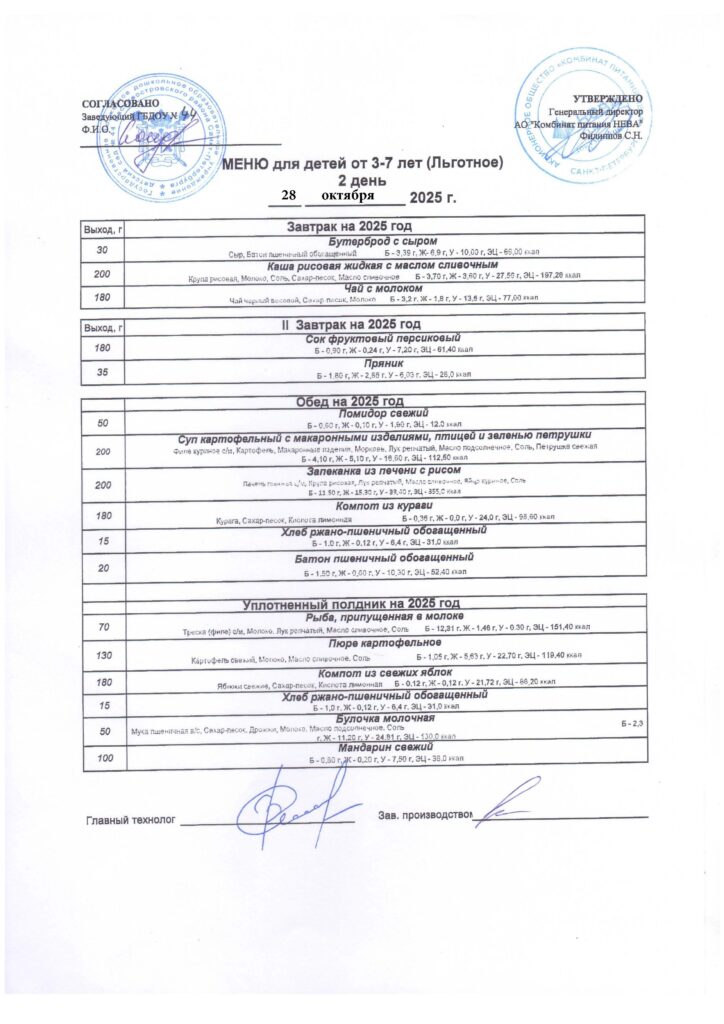 СОГЛАСОВАНО
Заведующий ГБДОУ № 44
Ф.И.О.
УТВЕРЖДЕНО
Генеральный директор
АО "Комбинат питания НЕВА"
Филиппов С.Н.
МЕНЮ для детей от 3-7 лет (Льготное)
2 день
28 октября 2025 г.
Выход, г Завтрак на 2025 год
30 Бутерброд с сыром
Сыр, Батон пшеничный обогащенный Б - 3,39 г, Ж- 6,9 г, У - 10,00 г, ЭЦ - 69,00 ккал
200 Каша рисовая жидкая с маслом сливочным
Крупа рисовая, Молоко, Соль, Сахар-песок, Масло сливочное Б - 3,70 г, Ж - 3,60 г, У - 27,56 г, ЭЦ - 197,28 ккал
180 Чай с молоком
Чай черный весовой, Сахар-песок, Молоко Б - 3,2 г, Ж - 1,8 г, У - 13,6 г, ЭЦ - 77,00 ккал
Выход, г II Завтрак на 2025 год
180 Сок фруктовый персиковый
Б - 0,90 г, Ж - 0,24 г, У - 7,20 г, ЭЦ - 61,40 ккал
35 Пряник
Б - 1,60 г, Ж - 2,66 г, У - 6,03 г, ЭЦ - 28,0 ккал
Обед на 2025 год
50 Помидор свежий
Б - 0,60 г, Ж - 0,10 г, У - 1,90 г, ЭЦ - 12,0 ккал
200 Суп картофельный с макаронными изделиями, птицей и зеленью петрушки
Филе куриное с/м, Картофель, Макаронные изделия, Морковь, Лук репчатый, Масло подсолнечное, Соль, Петрушка свежая
Б - 4,10 г, Ж - 5,10 г, У - 16,60 г, ЭЦ - 112,50 ккал
200 Запеканка из печени с рисом
Печень говяжья с/м, Крупа рисовая, Лук репчатый, Масло сливочное, Яйцо куриное, Соль
Б - 11,50 г, Ж - 15,30 г, У - 33,40 г, ЭЦ - 355,0 ккал
180 Компот из кураги
Курага, Сахар-песок, Кислота лимонная Б - 0,36 г, Ж - 0,0 г, У - 24,0 г, ЭЦ - 93,60 ккал
15 Хлеб ржано-пшеничный обогащенный
Б - 1,0 г, Ж - 0,12 г, У - 6,4 г, ЭЦ - 31,0 ккал
20 Батон пшеничный обогащенный
Б - 1,50 г, Ж - 0,60 г, У - 10,30 г, ЭЦ - 52,40 ккал
Уплотненный полдник на 2025 год
70 Рыба, припущенная в молоке
Треска (филе) с/м, Молоко, Лук репчатый, Масло сливочное, Соль Б - 12,31 г, Ж - 1,46 г, У - 0,30 г, ЭЦ - 151,40 ккал
130 Пюре картофельное
Картофель свежий, Молоко, Масло сливочное, Соль Б - 1,05 г, Ж - 5,63 г, У - 22,70 г, ЭЦ - 119,40 ккал
180 Компот из свежих яблок
Яблоки свежие, Сахар-песок, Кислота лимонная Б - 0,12 г, Ж - 0,12 г, У - 21,72 г, ЭЦ - 86,20 ккал
15 Хлеб ржано-пшеничный обогащенный
Б - 1,0 г, Ж - 0,12 г, У - 6,4 г, ЭЦ - 31,0 ккал
50 Булочка молочная
Мука пшеничная в/с, Сахар-песок, Дрожжи, Молоко, Масло подсолнечное, Соль Б - 2,3
г, Ж - 11,20 г, У - 24,81 г, ЭЦ - 130,0 ккал
100 Мандарин свежий
Б - 0,80 г, Ж - 0,20 г, У - 7,50 г, ЭЦ - 38,0 ккал
Главный технолог
Зав. производством